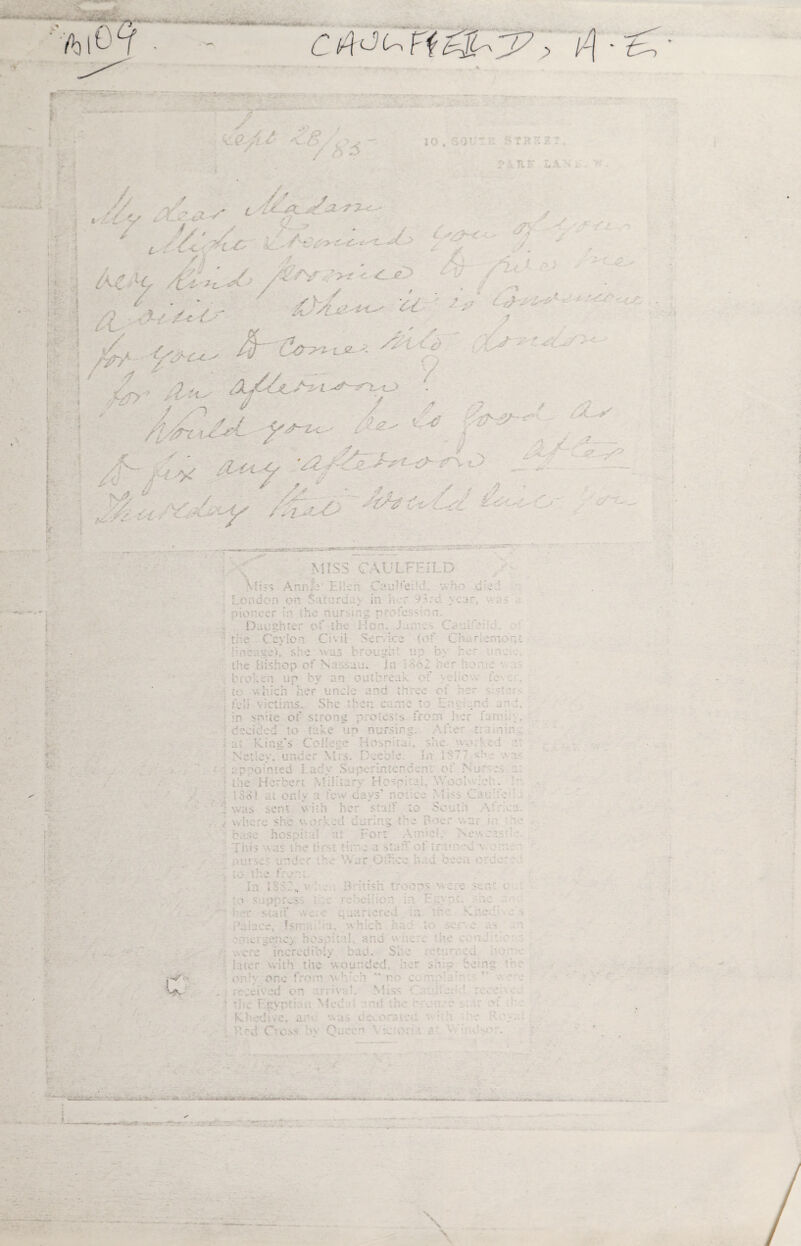 B109 . - CAULFFEILD, A.E.
Sept 28/85
10, SOUTH STREET,
PARK LANE. W.
My dear Madam
Might I remind you of your
very kind promise to give me
a visit When it is convenient
for you to come into London
for an afternoon ?
Would you be so good as
to fix any afternoon after
Thursday that would suit you
MISS CAULFEILD
Miss Annie Ellen Caulfeild, who died in
London on Saturday in her 93rd year, was a
pioneer in the nursing profession.
Daughter of the Hon. James Caulfeild, of
the Ceylon Civil Service (of Charlemont
lineage), she was brought up by her uncle,
the Bishop of Nassau. In 1862 her home was
broken up by an outbreak of yellow fever,
to which her uncle and three of her sisters
fell victims. She then came to England and,
in spite of strong protests from her family,
decided to take up nursing. After training
at King's College Hospital, she worked at
Netley, under Mrs. Deeble. In 1877 she was
appointed Lady Superintendent of Nurses at
the Herbert Military Hospital, Woolwich. In
1881 at only a few days' notice Miss Caulfeild
was sent with her staff to South Africa,
where she worked during the Boer war in the
base hospital at Fort Amiel, Newcastle.
This was the first time a staff of trained women
nurses under the War Office had been ordered
to the front.
In 1882, when British troops were sent out
to suppress the rebellion in Egypt, she and
her staff were quartered in the Khedive's
Palace, Ismailia, which had to serve as an
emergency hospital, and where the conditions
were incredibly bad. She returned home
later with the wounded, her ship being the
only one from which "no complaints" were
received on arrival. Miss Caulfeild received
the Egyptian Medal and the bronze star of the
Khedive, and was decorated with the Royal
Red Cross by Queen Victoria at Windsor.